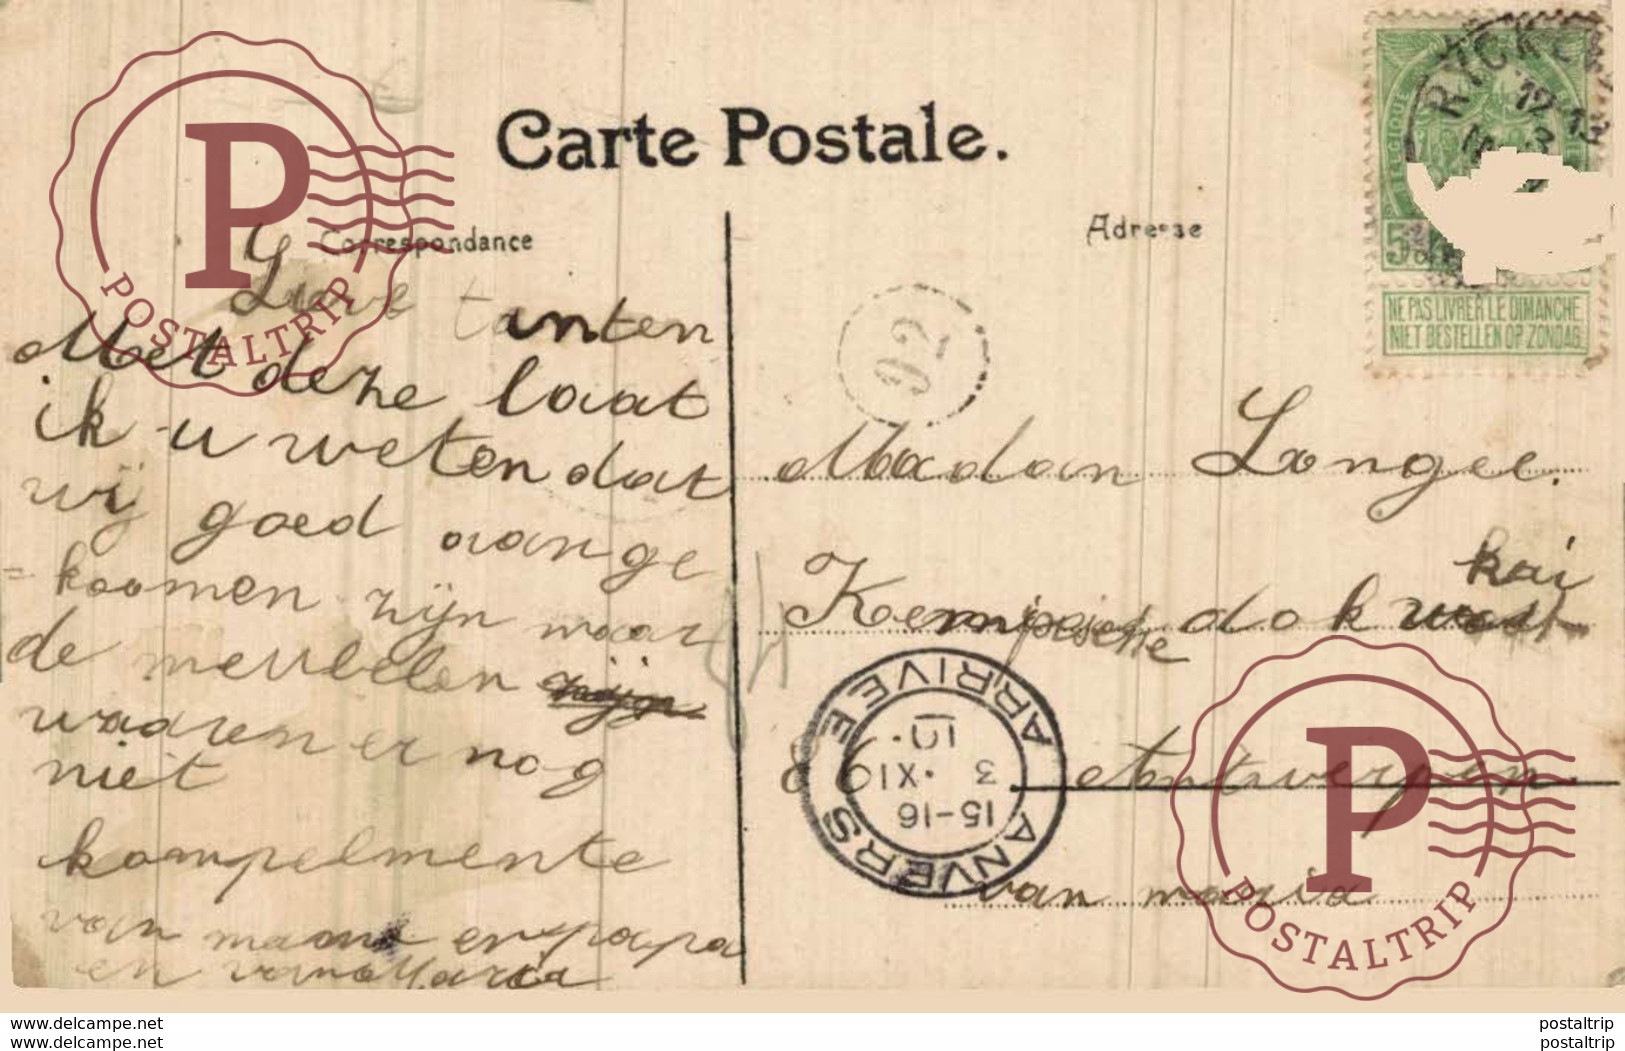 Carte Postale.
Correspondance
Adresse
Lieve tanten
Met deze laat
ik u weten dat
wij goed aange
= koomen zijn maar
de meubelen
waaren er nog
niet
kompelmente
van mama en papa
en van Maria
Madan Longee.
kai
Kempische dok
Antwerpen
van maria
92
RYCKEV
12-13
BELGIQUE
5
NE PAS LIVRER LE DIMANCHE
NIET BESTELLEN OP ZONDAG
ANVERS ARRIVEE
15-16
3 · XI
10
P
POSTALTRIP
P
POSTALTRIP
www.delcampe.net
www.delcampe.net
postaltrip
postaltrip